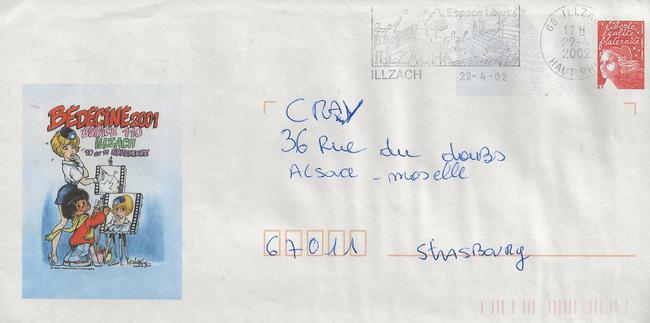 Espace Liberté
ILLZACH
22-4-02
68 ILLZACH
17 H
22-4
2002
HAUT-RHIN
Liberté
égalité
fraternité
BÉDÉCINÉ 2001
ESPACE 110
ILLZACH
10 et 11 NOVEMBRE
CRAV
36 Rue du doubs
Alsace - moselle
67011 Strasbourg